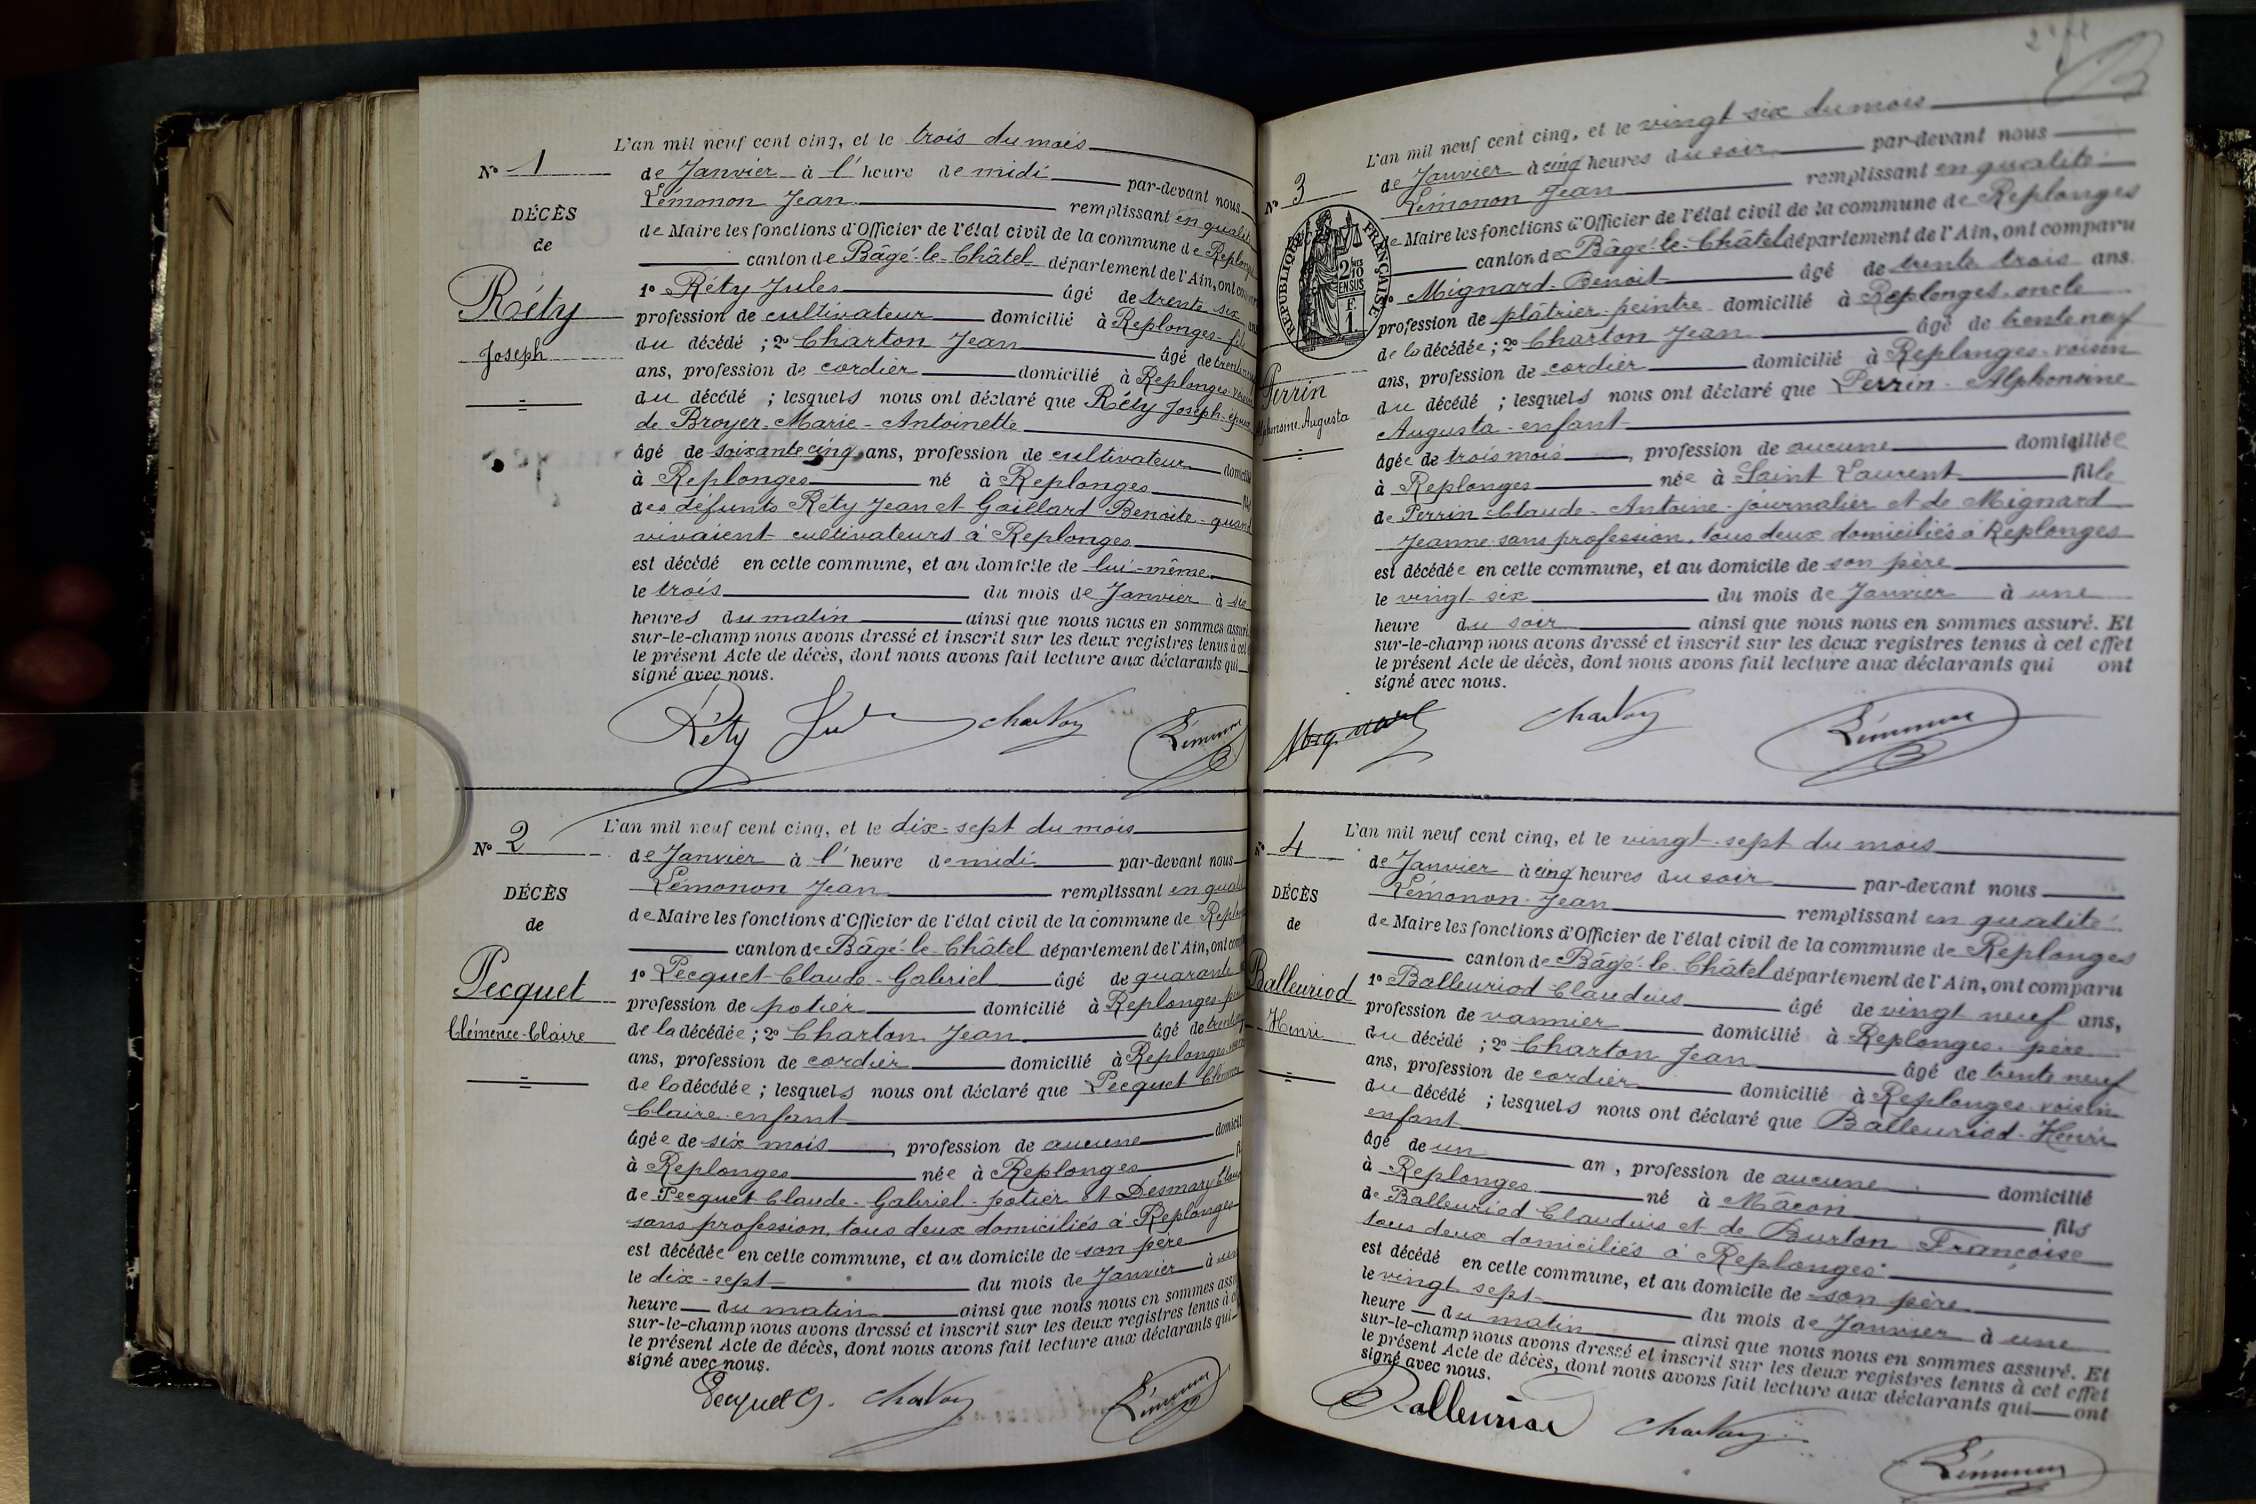 N° 1
DÉCÈS
de
Réty
Joseph
L'an mil neuf cent cinq, et le trois du mois
de Janvier à l'heure de midi par-devant nous
Lémonon Jean remplissant en qualité
de Maire les fonctions d'Officier de l'état civil de la commune de Replonges
canton de Bâgé-le-Châtel département de l'Ain, ont
1° Réty Jules âgé de trente six
profession de cultivateur domicilié à Replonges - fils
du décédé ; 2° Charton Jean âgé de
ans, profession de cordier domicilié à Replonges
du décédé ; lesquels nous ont déclaré que Réty Joseph - époux
de Broyer - Marie - Antoinette
âgé de soixante cinq ans, profession de cultivateur
à Replonges né à Replonges fils
des défunts Réty Jean et Gaillard Benoite - quand
vivaient cultivateurs à Replonges
est décédé en cette commune, et au domicile de lui-même
le trois du mois de Janvier à six
heures du matin ainsi que nous nous en sommes assuré.
sur-le-champ nous avons dressé et inscrit sur les deux registres tenus à cet
le présent Acte de décès, dont nous avons fait lecture aux déclarants qui
signé avec nous.
Réty Charton Lémonon
N° 2
DÉCÈS
de
Pecquet
Clémence-Claire
L'an mil neuf cent cinq, et le dix-sept du mois
de Janvier à l'heure de midi par-devant nous
Lémonon Jean remplissant en qualité
de Maire les fonctions d'Officier de l'état civil de la commune de
canton de Bâgé-le-Châtel département de l'Ain, ont
1° Pecquet Claude - Gabriel âgé de quarante
profession de potier domicilié à Replonges
de la décédée ; 2° Charton Jean âgé de
ans, profession de cordier domicilié à Replonges
de la décédée ; lesquels nous ont déclaré que Pecquet
Claire - enfant
âgée de six mois, profession de aucune
à Replonges née à Replonges
de Pecquet Claude - Gabriel - potier et Desmary
sans profession, tous deux domiciliés à Replonges
est décédée en cette commune, et au domicile de son père
le dix-sept du mois de Janvier à une
heure du matin ainsi que nous nous en sommes
sur-le-champ nous avons dressé et inscrit sur les deux registres tenus à
le présent Acte de décès, dont nous avons fait lecture aux déclarants qui
signé avec nous.
Pecquet G. Charton Lémonon
N° 3
RÉPUBLIQUE FRANÇAISE
Perrin
Alphonsine-Augusta
L'an mil neuf cent cinq, et le vingt six du mois
de Janvier à cinq heures du soir par-devant nous
Lémonon Jean remplissant en qualité
de Maire les fonctions d'Officier de l'état civil de la commune de Replonges
canton de Bâgé-le-Châtel département de l'Ain, ont comparu
1° Mignard - Benoit âgé de trente trois ans
profession de plâtrier-peintre domicilié à Replonges - oncle
de la décédée ; 2° Charton Jean âgé de trente neuf
ans, profession de cordier domicilié à Replonges - voisin
du décédé ; lesquels nous ont déclaré que Perrin - Alphonsine
Augusta - enfant
âgée de trois mois, profession de aucune domiciliée
à Replonges née à Saint Laurent fille
de Perrin Claude - Antoine - journalier et de Mignard
Jeanne sans profession, tous deux domiciliés à Replonges
est décédée en cette commune, et au domicile de son père
le vingt six du mois de Janvier à une
heure du soir ainsi que nous nous en sommes assuré. Et
sur-le-champ nous avons dressé et inscrit sur les deux registres tenus à cet effet
le présent Acte de décès, dont nous avons fait lecture aux déclarants qui ont
signé avec nous.
Mignard Charton Lémonon
N° 4
DÉCÈS
de
Balleuriod
Henri
L'an mil neuf cent cinq, et le vingt-sept du mois
de Janvier à cinq heures du soir par-devant nous
Lémonon Jean remplissant en qualité
de Maire les fonctions d'Officier de l'état civil de la commune de Replonges
canton de Bâgé-le-Châtel département de l'Ain, ont comparu
1° Balleuriod Claudius âgé de vingt neuf ans,
profession de vannier domicilié à Replonges - père
du décédé ; 2° Charton Jean âgé de trente neuf
ans, profession de cordier domicilié à Replonges voisin
du décédé ; lesquels nous ont déclaré que Balleuriod - Henri
enfant
âgé de un an, profession de aucune domicilié
à Replonges né à Mâcon fils
de Balleuriod Claudius et de Burton Françoise
tous deux domiciliés à Replonges
est décédé en cette commune, et au domicile de son père
le vingt sept du mois de Janvier à une
heure du matin ainsi que nous nous en sommes assuré. Et
sur-le-champ nous avons dressé et inscrit sur les deux registres tenus à cet effet
le présent Acte de décès, dont nous avons fait lecture aux déclarants qui ont
signé avec nous.
Balleuriod Charton Lémonon